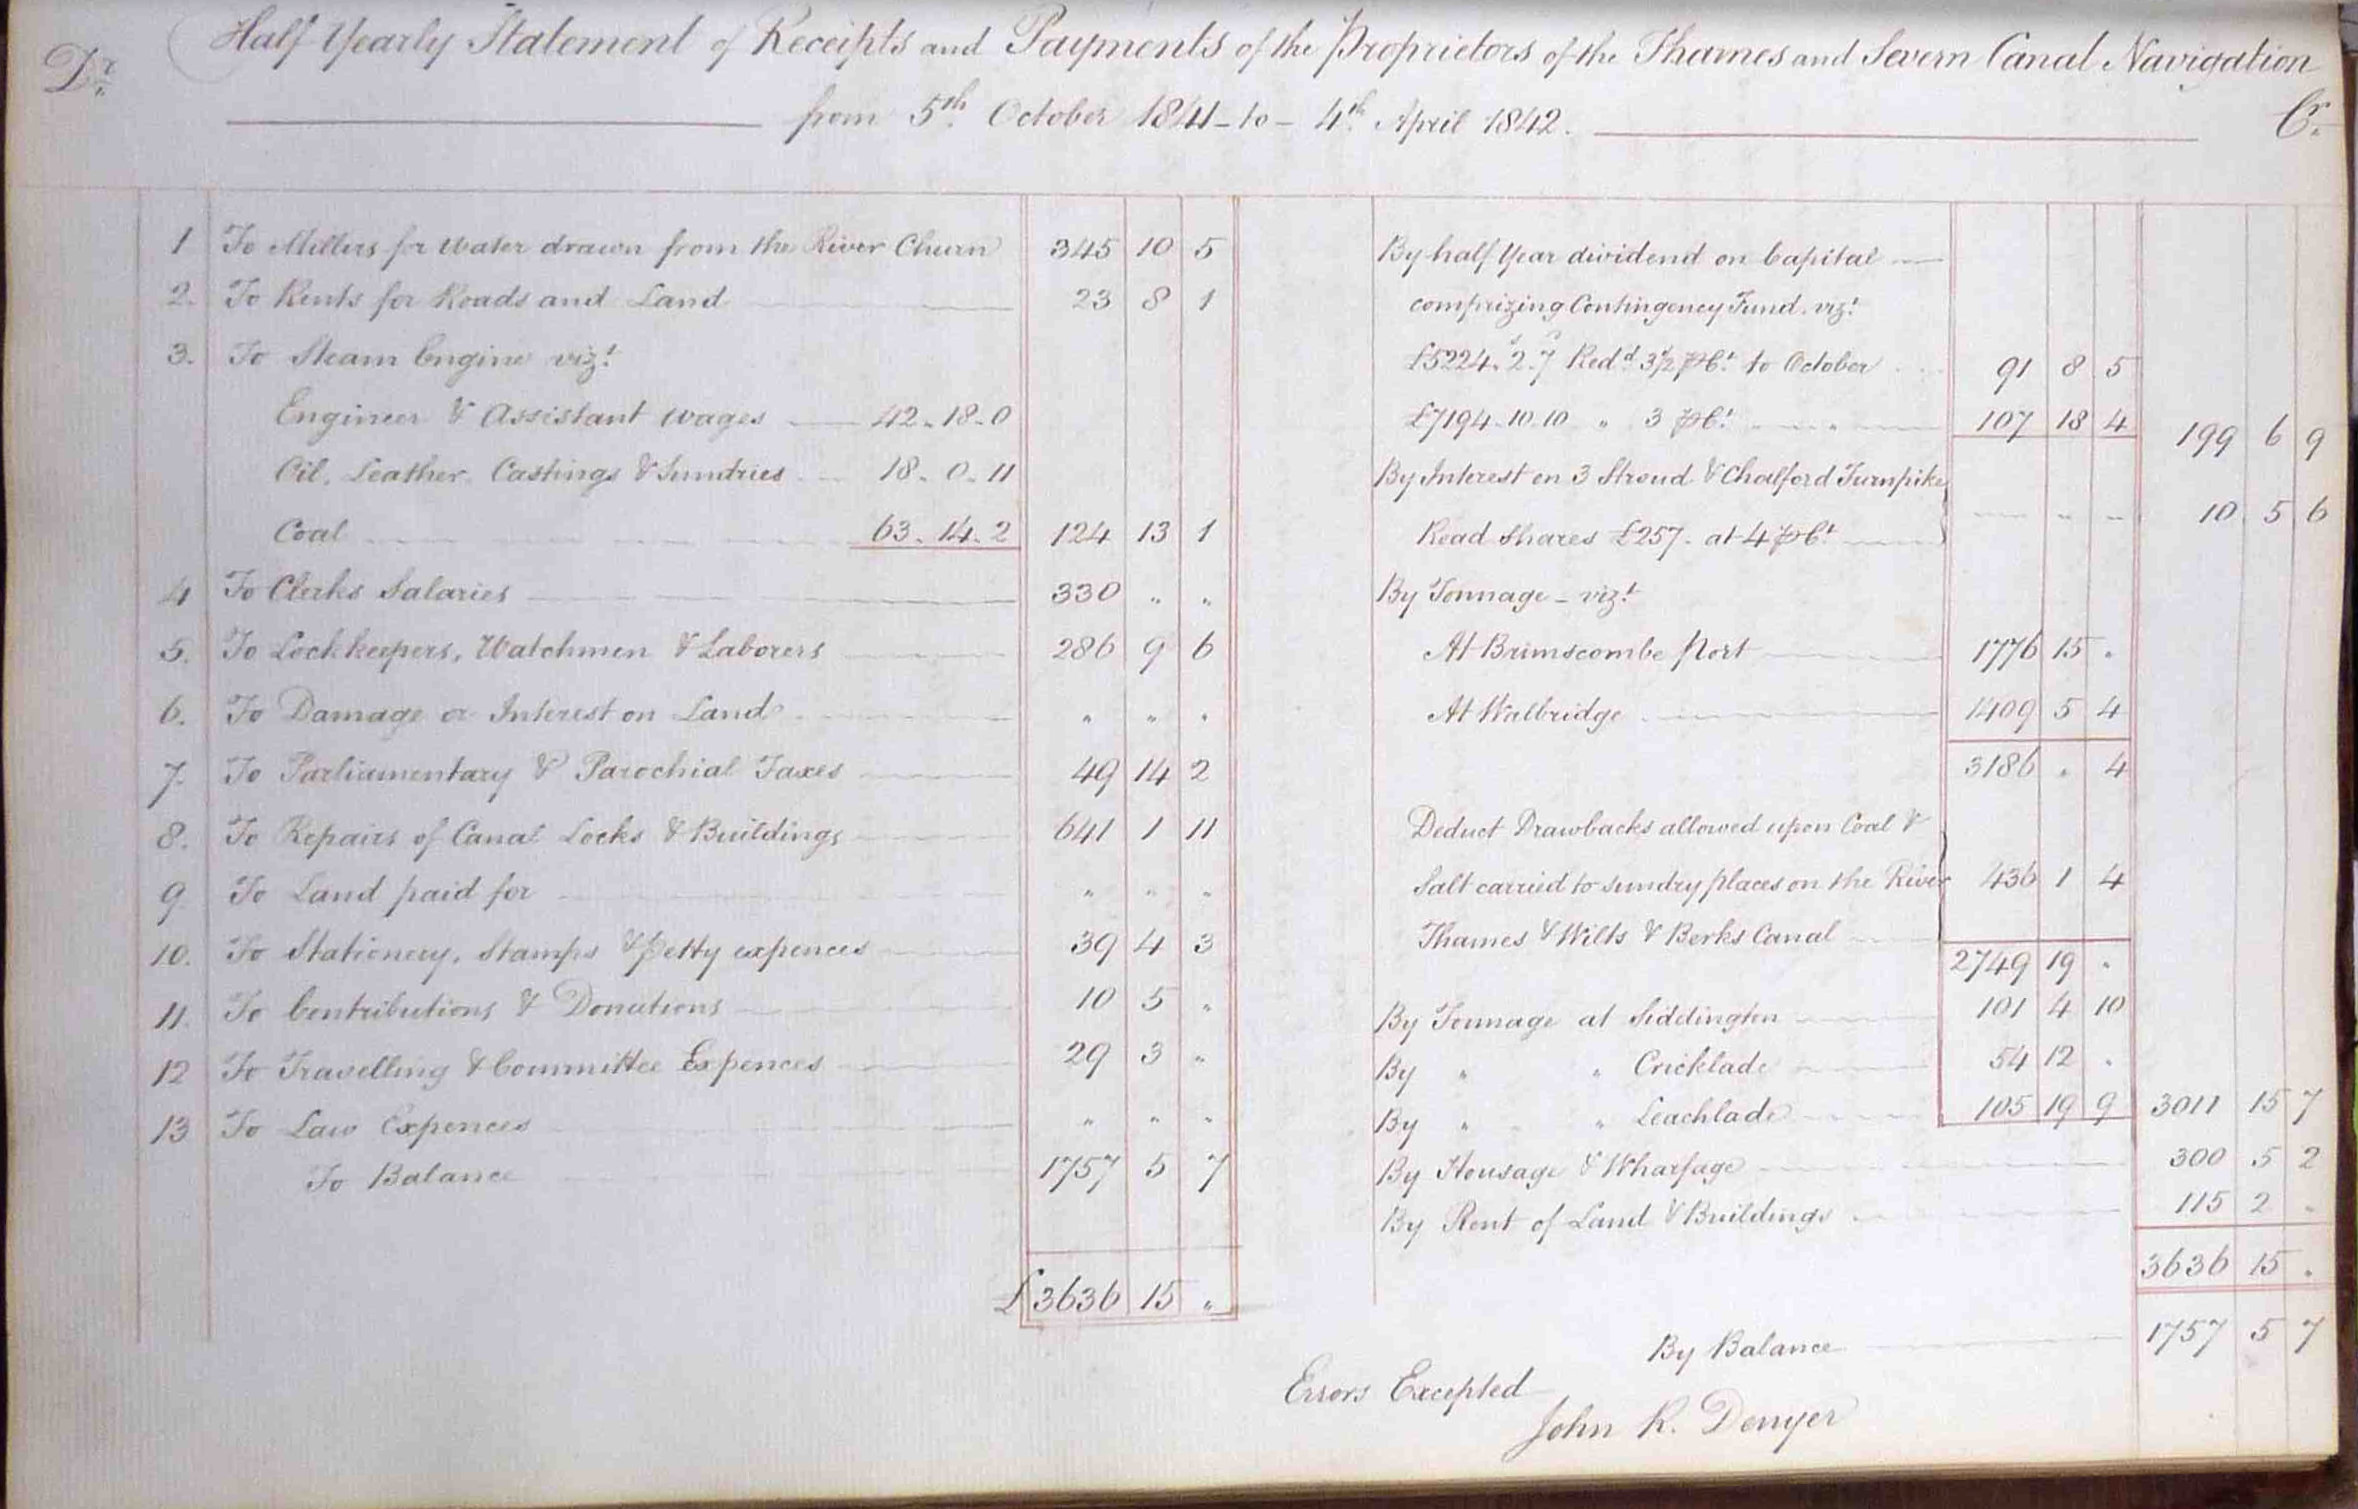 Dr. Half Yearly Statement of Receipts and Payments of the Proprietors of the Thames and Severn Canal Navigation
from 5th October 1841 - to - 4th April 1842. Cr.
1 To Millers for Water drawn from the River Churn 345 10 5
2. To Rents for Roads and Land 23 8 1
3. To Steam Engine vizt
Engineer & Assistant wages 42 - 18 - 0
Oil, Leather, Castings & Sundries 18 - 0 - 11
Coal 63 - 14 - 2 124 13 1
4 To Clerks Salaries 330 " "
5. To Lockkeepers, Watchmen & Laborers 286 9 6
6. To Damage or Interest on Land " " "
7. To Parliamentary & Parochial Taxes 49 14 2
8. To Repairs of Canal Locks & Buildings 641 1 11
9 To Land paid for " " "
10. To Stationery, Stamps & Petty expences 39 4 3
11. To Contributions & Donations 10 5 "
12 To Travelling & Committee Expences 29 3 "
13 To Law Expences " " "
To Balance 1757 5 7
£3636 15 "
By half Year dividend on Capital
comprizing Contingency Fund. vizt
£5224. 2. 7 Redd 3½ pCt to October 91 8 5
£7194. 10. 10 " 3 pCt " " 107 18 4 199 6 9
By Interest on 3 Stroud & Chalford Turnpike
Road Shares £257. at 4 pCt 10 5 6
By Tonnage - vizt
At Brimscombe Port 1776 15 "
At Walbridge 1409 5 4
3186 " 4
Deduct Drawbacks allowed upon Coal &
Salt carried to sundry places on the River 436 1 4
Thames & Wilts & Berks Canal
2749 19 "
By Tonnage at Siddington 101 4 10
By " " Cricklade 54 12 "
By " " Leachlade 105 19 9 3011 15 7
By Housage & Wharfage 300 5 2
By Rent of Land & Buildings 115 2 "
3636 15 "
By Balance 1757 5 7
Errors Excepted
John R. Denyer